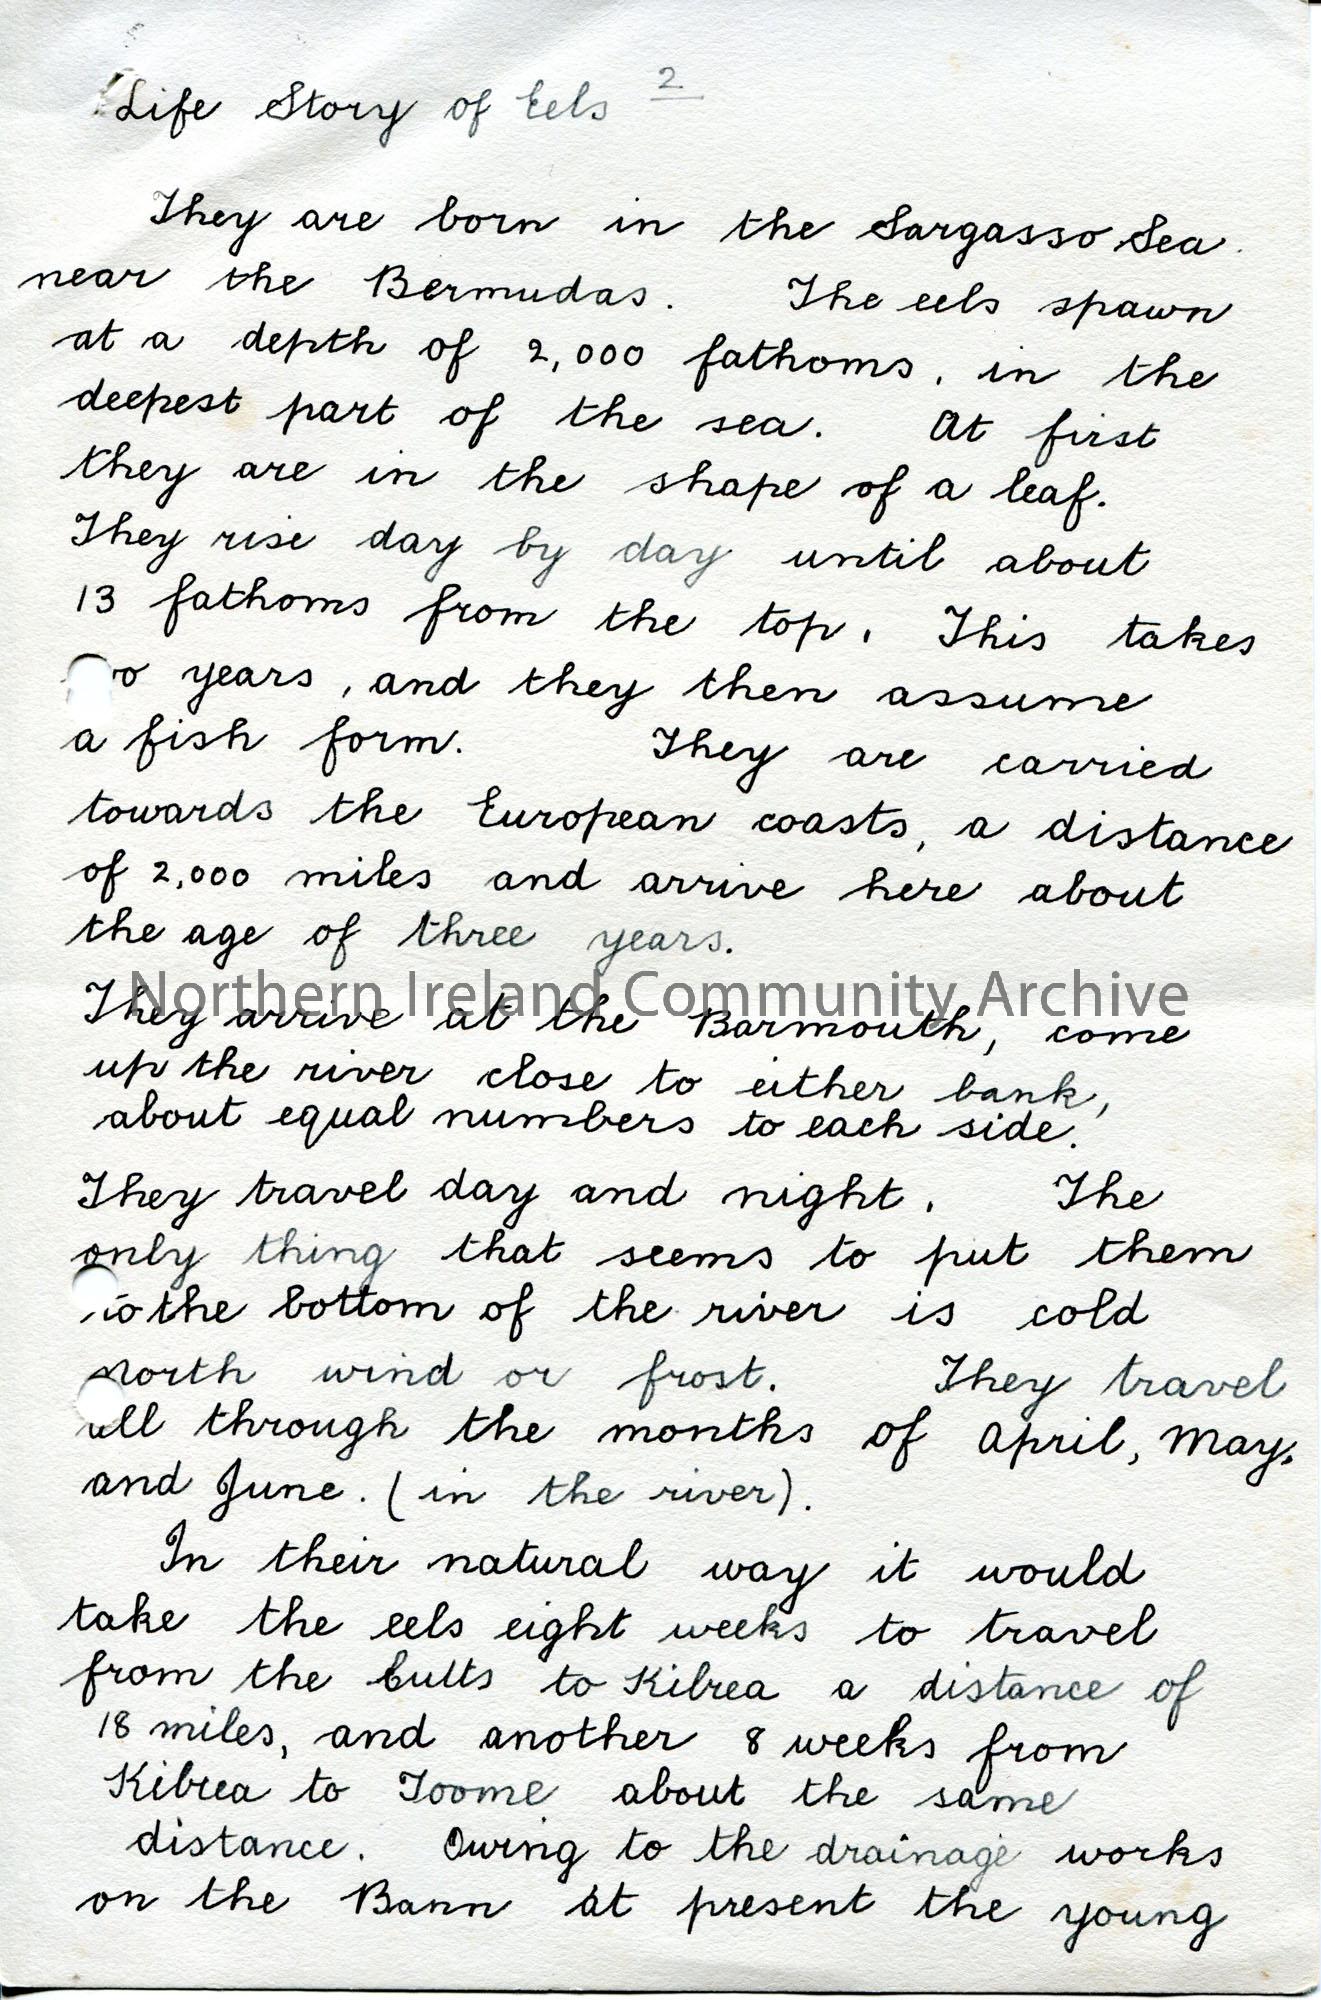 Life Story of Eels 2
They are born in the Sargasso Sea
near the Bermudas. The eels spawn
at a depth of 2,000 fathoms, in the
deepest part of the sea. At first
they are in the shape of a leaf.
They rise day by day until about
13 fathoms from the top. This takes
years, and they then assume
a fish form. They are carried
towards the European coasts, a distance
of 2,000 miles and arrive here about
the age of three years.
Northern Ireland Community Archive
They arrive at the Barmouth, come
up the river close to either bank,
about equal numbers to each side.
They travel day and night. The
only thing that seems to put them
to the bottom of the river is cold
North wind or frost. They travel
all through the months of April, May,
and June. (in the river).
In their natural way it would
take the eels eight weeks to travel
from the Cutts to Kilrea a distance of
18 miles, and another 8 weeks from
Kilrea to Toome about the same
distance. Owing to the drainage works
on the Bann at present the young